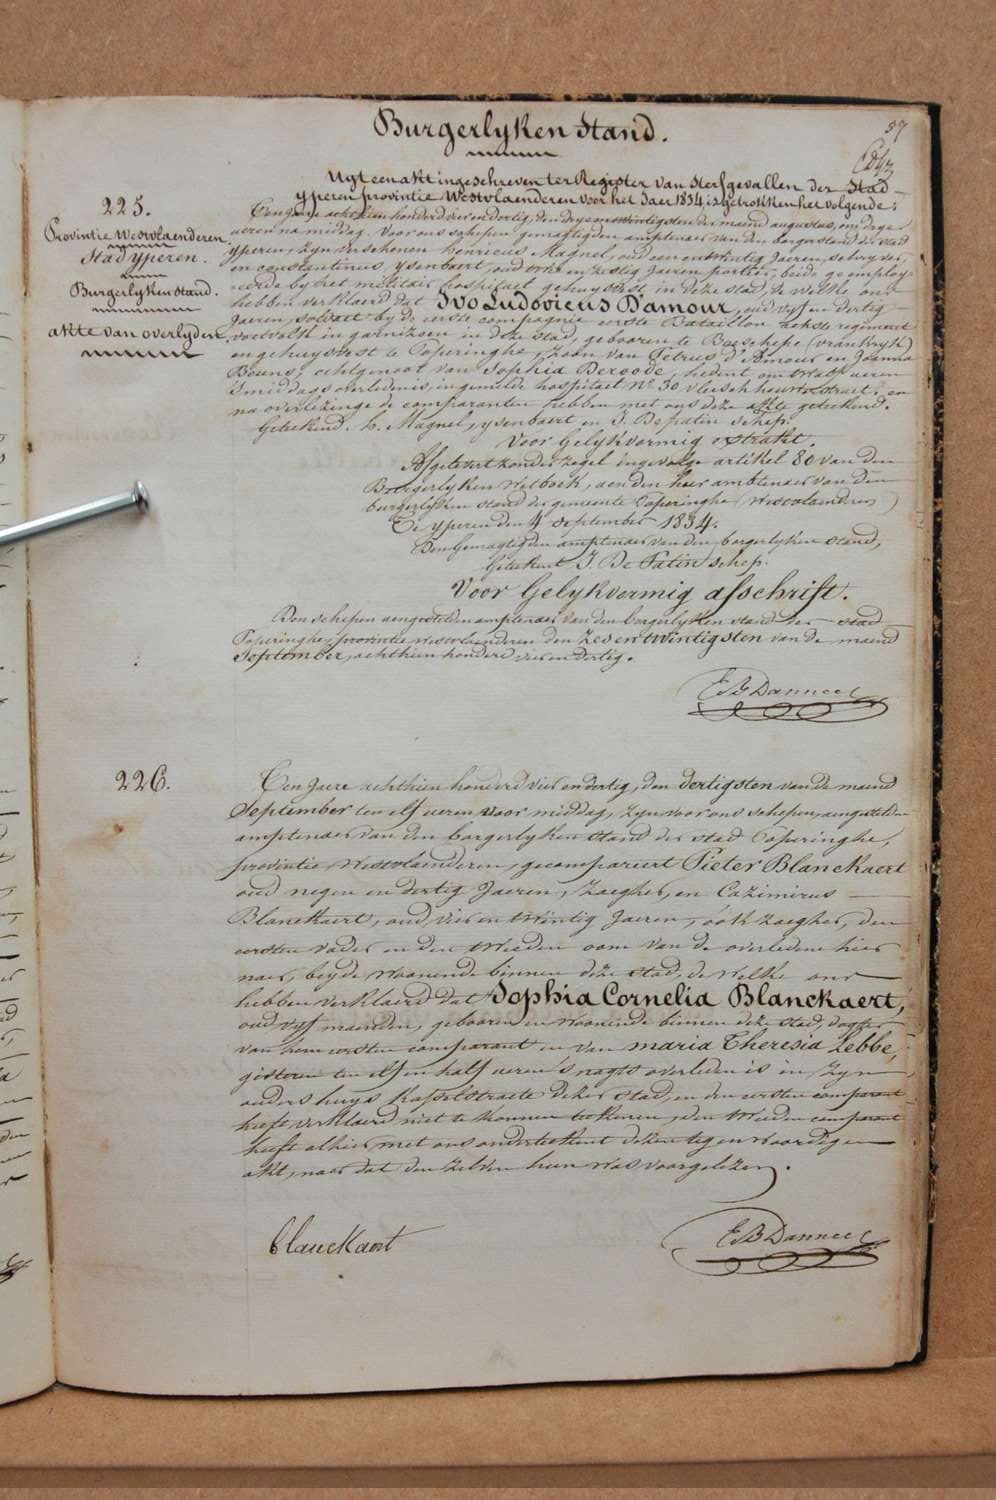 57
Burgerlyken Stand.
Uyt een akt ingeschreven ter Register van sterfgevallen der Stad
yperen provintie Westvlaenderen voor het Jaer 1834, is getrokken het volgende:
225.
Provintie Westvlaenderen.
Stad yperen.
Burgerlyken stand.
akte van overlyden
Ten jaere achthien honderd vier en dertig, den dry en twintigsten der maend augustus, om drye
ueren na middag. Voor ons schepen gemagtigden amptenaer van den borgerstand der stad
yperen, zyn verschenen henricus Magnel, oud een en twintig Jaeren, schryver,
en constantinus ysenbaert, oud en zestig Jaeren portier, beide geemploy-
eerde by het militair hospitael gehuysvest in deze stad, de welke ons
hebben verklaerd dat Ivo Ludovicus D'amour, oud vyf en dertig
Jaeren, soldaet by de eerste compagnie eerste Bataillon regiment
voetvolk in garnizoen in deze stad, gebooren te Boeschepe (vrankryk)
en gehuysvest te Poperinghe, zoon van Petrus d'Amour en Joanna
Beuns, echtgenoot van Sophia Deroode, hedent om twalf ueren
smiddags overleden is, in gemelde hospitael No. 30 vleeschhouwerstraet, en
na overlezinge de comparanten hebben met ons deze akte geteekend.
Geteekend. h. Magnel, ysenbaert en J. De patin schep.
Voor Gelykvormig extrakt.
Afgelevert zonder zegel ingevolge artikel 80 van den
Borgerlyken Wetboek, aen den heer ambtenaer van den
burgerlyken stand der gemeente Poperinghe (Westvlaendren)
Te yperen den 4 September 1834.
Den Gemagtigden amptenaer van den borgerlyken stand,
Geteekent J. De Patin schep.
Voor Gelykvormig afschrift.
Den schepen aengestelden amptenaer van den borgerlyken stand der stad
Poperinghe, provintie westvlaenderen den zes en twintigsten van de maend
September, achthien honderd vier en dertig.
E B Danneel
226.
Ten Jare achthien honderd vier en dertig, den dertigsten van de maend
September ten elf ueren voor middag, zyn voor ons schepen, aengestelden
amptenaer van den borgerlyken stand der stad Poperinghe,
provintie Westvlaenderen, gecompareert Pieter Blanckaert
oud negen en dertig Jaeren, Zaegher, en Cazimirus
Blanckaert, oud vier en twintig Jaeren, ook zaegher, den
eersten vader en den tweeden oom van de overledene hier
naer, beyde woonende binnen deze stad, de welke ons
hebben verklaerd dat Sophia Cornelia Blanckaert,
oud vyf maenden, gebooren en woonende binnen deze stad, dogter
van hem eersten comparant en van maria Theresia Lebbe,
gisteren ten elf en half ueren s'nagts overleden is in zyn
ouders huys Kasselstraete dezer stad, en den eersten comparant
heeft verklaerd niet te konnen teekenen, den tweeden comparant
heeft alhier met ons onderteekent dezen tegenwoordigen
akt, naer dat den zelven hun was voorgelezen.
blanckaert
E B Danneel